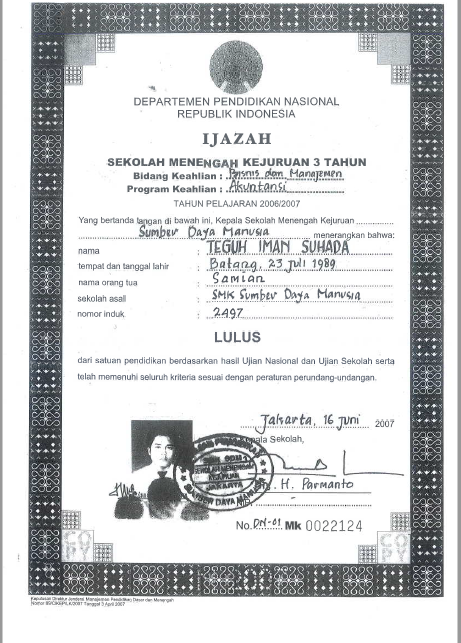 DEPARTEMEN PENDIDIKAN NASIONAL
REPUBLIK INDONESIA
IJAZAH
SEKOLAH MENENGAH KEJURUAN 3 TAHUN
Bidang Keahlian : Bisnis dan Manajemen
Program Keahlian : Akuntansi
TAHUN PELAJARAN 2006/2007
Yang bertanda tangan di bawah ini, Kepala Sekolah Menengah Kejuruan
Sumber Daya Manusia menerangkan bahwa:
nama : TEGUH IMAN SUHADA
tempat dan tanggal lahir : Batang, 23 Juli 1989
nama orang tua : Samian
sekolah asal : SMK Sumber Daya Manusia
nomor induk : 2497
LULUS
dari satuan pendidikan berdasarkan hasil Ujian Nasional dan Ujian Sekolah serta
telah memenuhi seluruh kriteria sesuai dengan peraturan perundang-undangan.
Jakarta, 16 Juni 2007
Kepala Sekolah,
SEKOLAH MENENGAH
KEJURUAN
JAKARTA
SUMBER DAYA
H. Parmanto
No. DN-01 Mk 0022124
COPY
COPY
Keputusan Direktur Jenderal Manajemen Pendidikan Dasar dan Menengah
Tanggal 3 April 2007